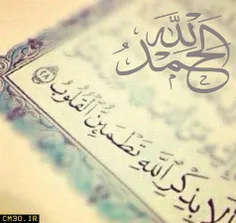 الحمد لله
ألا بذكر الله تطمئن القلوب ٢٨
CM3O.IR